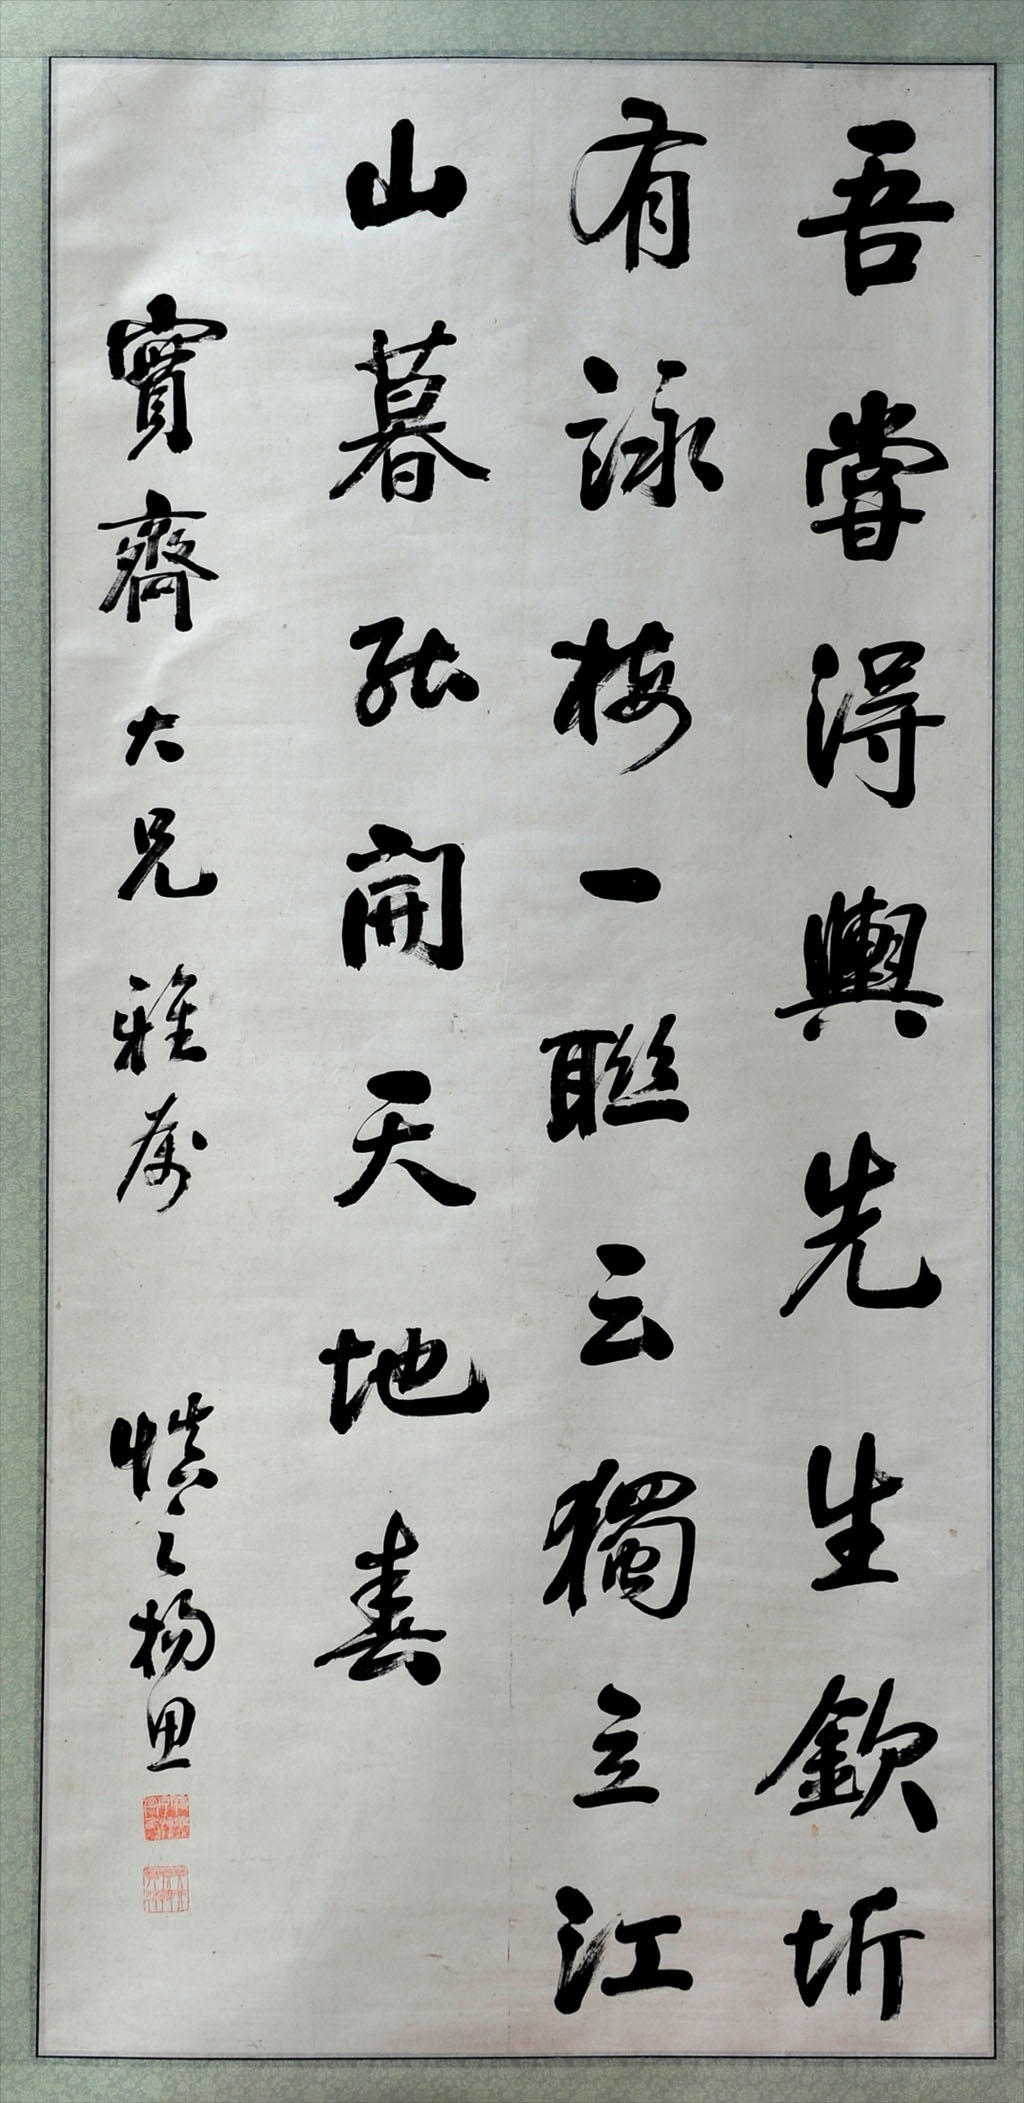 吾嘗得輿先生欽圻
有詠梅一聯云獨立江
山暮能開天地春
實齋大兄雅屬
慎之楊思